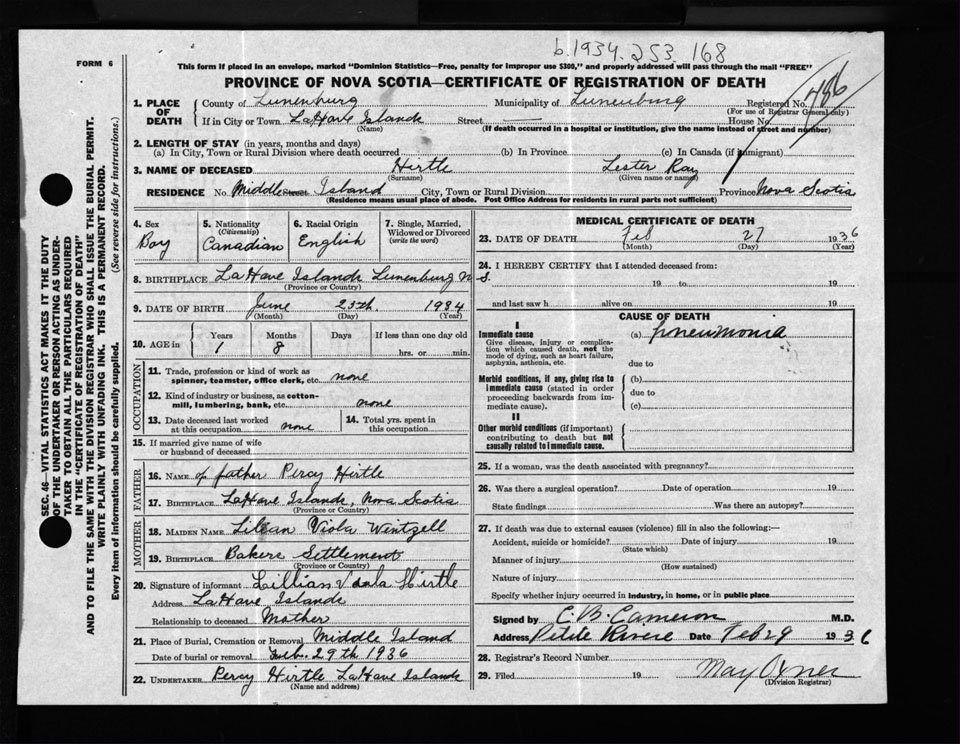 b.1934.253168
FORM 6
This form if placed in an envelope, marked "Dominion Statistics—Free, penalty for improper use $300," and properly addressed will pass through the mail "FREE"
PROVINCE OF NOVA SCOTIA—CERTIFICATE OF REGISTRATION OF DEATH
SEC. 46—VITAL STATISTICS ACT MAKES IT THE DUTY
OF THE UNDERTAKER OR PERSON ACTING AS UNDER-
TAKER TO OBTAIN ALL THE PARTICULARS REQUIRED
IN THE "CERTIFICATE OF REGISTRATION OF DEATH"
AND TO FILE THE SAME WITH THE DIVISION REGISTRAR WHO SHALL ISSUE THE BURIAL PERMIT.
WRITE PLAINLY WITH UNFADING INK. THIS IS A PERMANENT RECORD.
Every item of information should be carefully supplied. (See reverse side for instructions.)
1. PLACE OF DEATH County of Lunenburg Municipality of Lunenburg Registered No. 786
(For use of Registrar General only)
If in City or Town LaHave Islands Street — House No.
(Name) (If death occurred in a hospital or institution, give the name instead of street and number)
2. LENGTH OF STAY (in years, months and days)
(a) In City, Town or Rural Division where death occurred (b) In Province (c) In Canada (if immigrant)
3. NAME OF DECEASED Hirtle Lester Ray
(Surname) (Given name or names)
RESIDENCE No. Middle Street Island City, Town or Rural Division Province Nova Scotia
(Residence means usual place of abode. Post Office Address for residents in rural parts not sufficient)
4. Sex Boy
5. Nationality (Citizenship) Canadian
6. Racial Origin English
7. Single, Married, Widowed or Divorced (write the word)
8. BIRTHPLACE LaHave Islands Lunenburg N S.
(Province or Country)
9. DATE OF BIRTH June 25th. 1934
(Month) (Day) (Year)
10. AGE in Years 1 Months 8 Days If less than one day old hrs. or min.
OCCUPATION
11. Trade, profession or kind of work as spinner, teamster, office clerk, etc. none
12. Kind of industry or business, as cotton-mill, lumbering, bank, etc. none
13. Date deceased last worked at this occupation none
14. Total yrs. spent in this occupation
15. If married give name of wife or husband of deceased
FATHER
16. NAME of father Percy Hirtle
17. BIRTHPLACE LaHave Islands, Nova Scotia
(Province or Country)
MOTHER
18. MAIDEN NAME Lilean Viola Wentzell
19. BIRTHPLACE Bakers Settlement
(Province or Country)
20. Signature of informant Lillian Viola Hirtle
Address LaHave Islands
Relationship to deceased Mother
21. Place of Burial, Cremation or Removal Middle Island
Date of burial or removal Feb. 29th 1936
22. UNDERTAKER Percy Hirtle LaHave Islands
(Name and address)
MEDICAL CERTIFICATE OF DEATH
23. DATE OF DEATH Feb 27 1936
(Month) (Day) (Year)
24. I HEREBY CERTIFY that I attended deceased from:
19 to 19
and last saw h alive on 19
CAUSE OF DEATH
I
Immediate cause (a) pneumonia
Give disease, injury or complication which caused death, not the mode of dying, such as heart failure, asphyxia, asthenia, etc. due to
Morbid conditions, if any, giving rise to immediate cause (stated in order proceeding backwards from immediate cause). (b) due to (c)
II
Other morbid conditions (if important) contributing to death but not causally related to immediate cause.
25. If a woman, was the death associated with pregnancy?
26. Was there a surgical operation? Date of operation 19
State findings Was there an autopsy?
27. If death was due to external causes (violence) fill in also the following:—
Accident, suicide or homicide? Date of injury 19
(State which)
Manner of injury
(How sustained)
Nature of injury
Specify whether injury occurred in industry, in home, or in public place
Signed by C. B. Cameron M.D.
Address Petite Riviere Date Feb 29 1936
28. Registrar's Record Number
29. Filed 19 May Oxner
(Division Registrar)